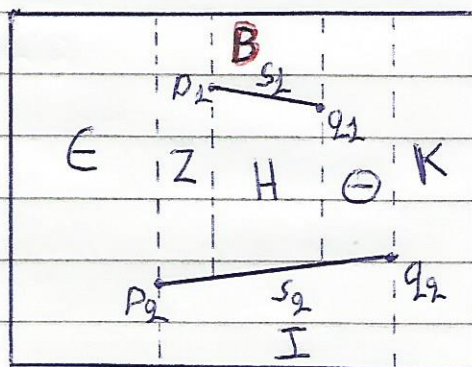 B
p1 s1 q1
E Z H Θ K
p2 s2 q2
I